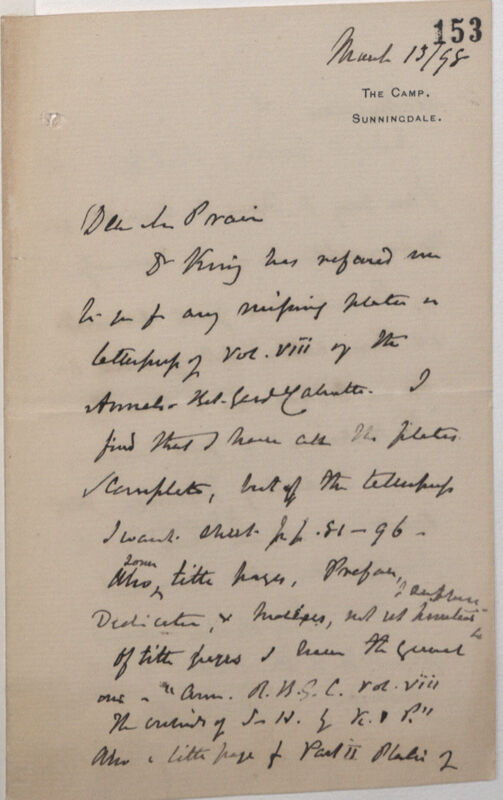 153
March 13/98
THE CAMP.
SUNNINGDALE.
Dear Mr Prain
Dr King has referred me
to you for any missing plates or
letterpress of Vol. VIII of the
Annals Bot. Gard Calcutta. I
find that I have all the plates
complete, but of the letterpress
I want sheet pp. 81–96 –
Also, title pages, Preface,
Dedication, & Indexes, not yet printed
I suppose
Of title pages I have the general
one – "Ann. R. B. G. C. Vol. VIII
The orchids of S– H. by K. & P."
Also a title page for Part II Plates of